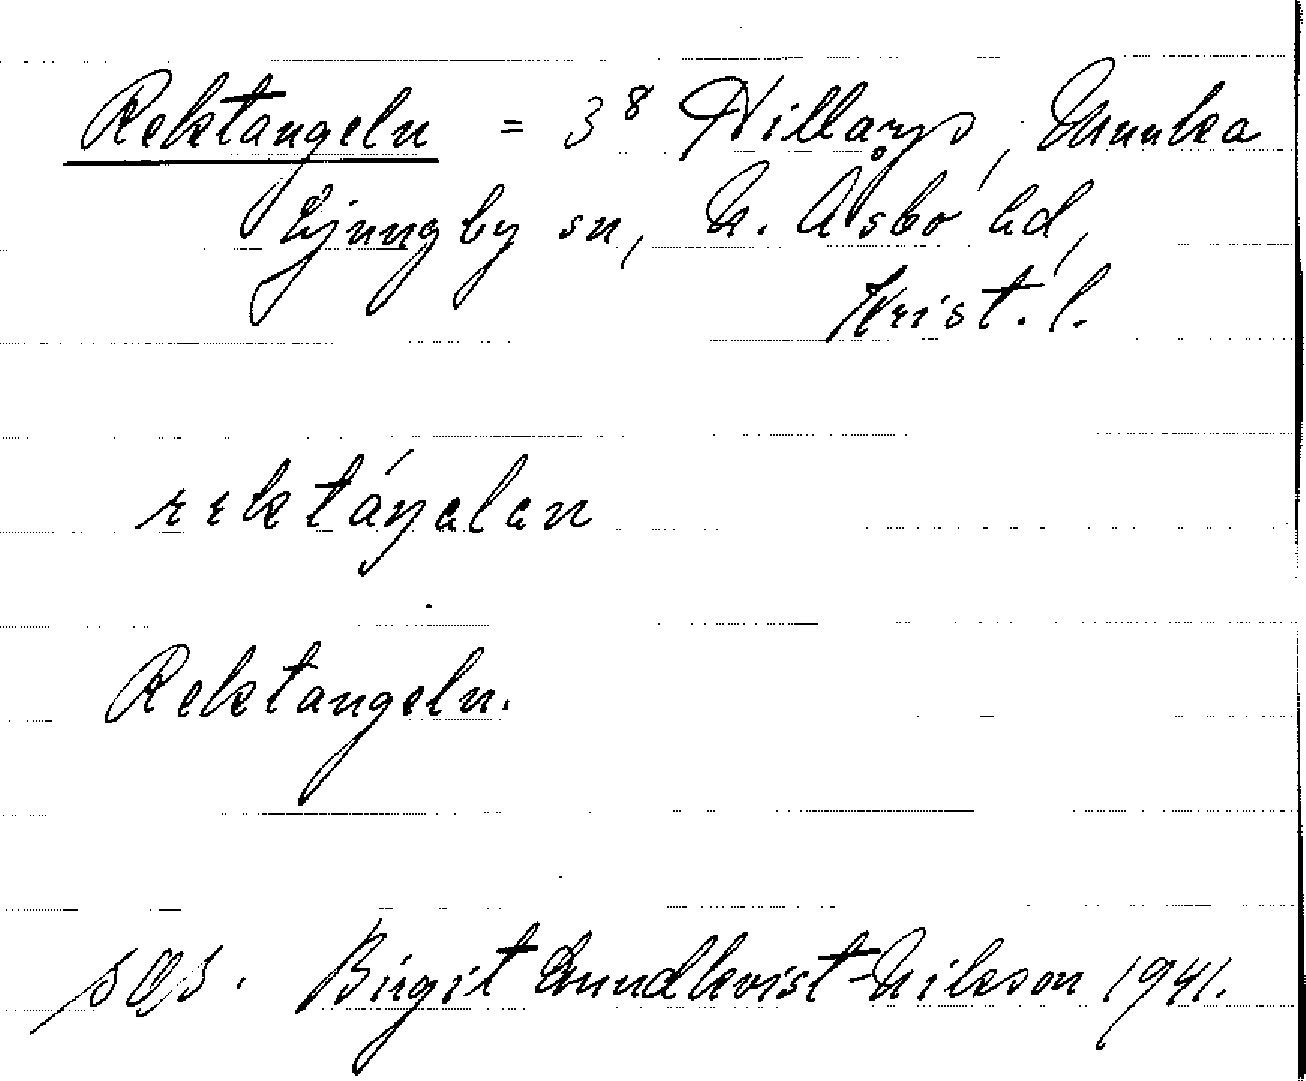 Rektangeln = 3⁸ Hillarps, Munka
Ljungby sn, N. Åsbo hd,
Krist. l.
rektáŋələn
Rektangeln.
Birgit Lundkvist-Nilsson 1941.